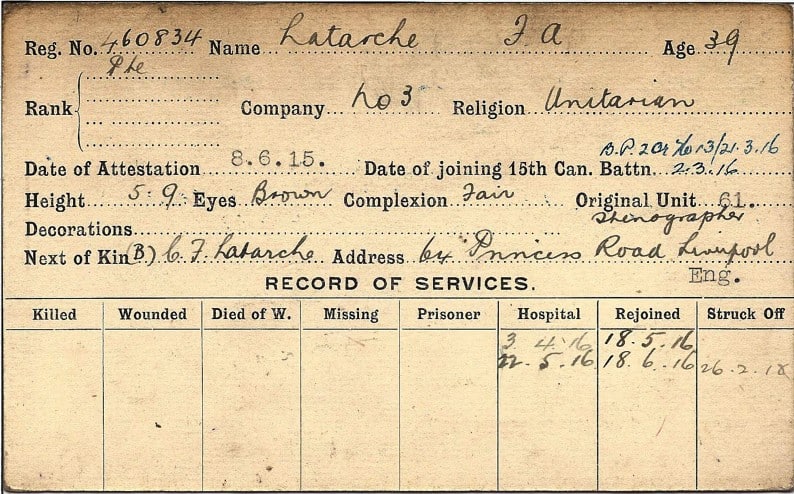 Reg. No. 460834 Name Latarche F A Age 39
Pte
Rank Company No 3 Religion Unitarian
B.P. 2 Or No 13/21.3.16
Date of Attestation 8.6.15. Date of joining 15th Can. Battn. 2.3.16
Height 5.9 Eyes Brown Complexion Fair Original Unit 61.
Stenographer
Decorations
Next of Kin (B) C. F. Latarche Address 64 Princess Road Liverpool
Eng.
RECORD OF SERVICES.
Killed Wounded Died of W. Missing Prisoner Hospital Rejoined Struck Off
3 4.16 18.5.16
22.5.16 18.6.16 26.2.18